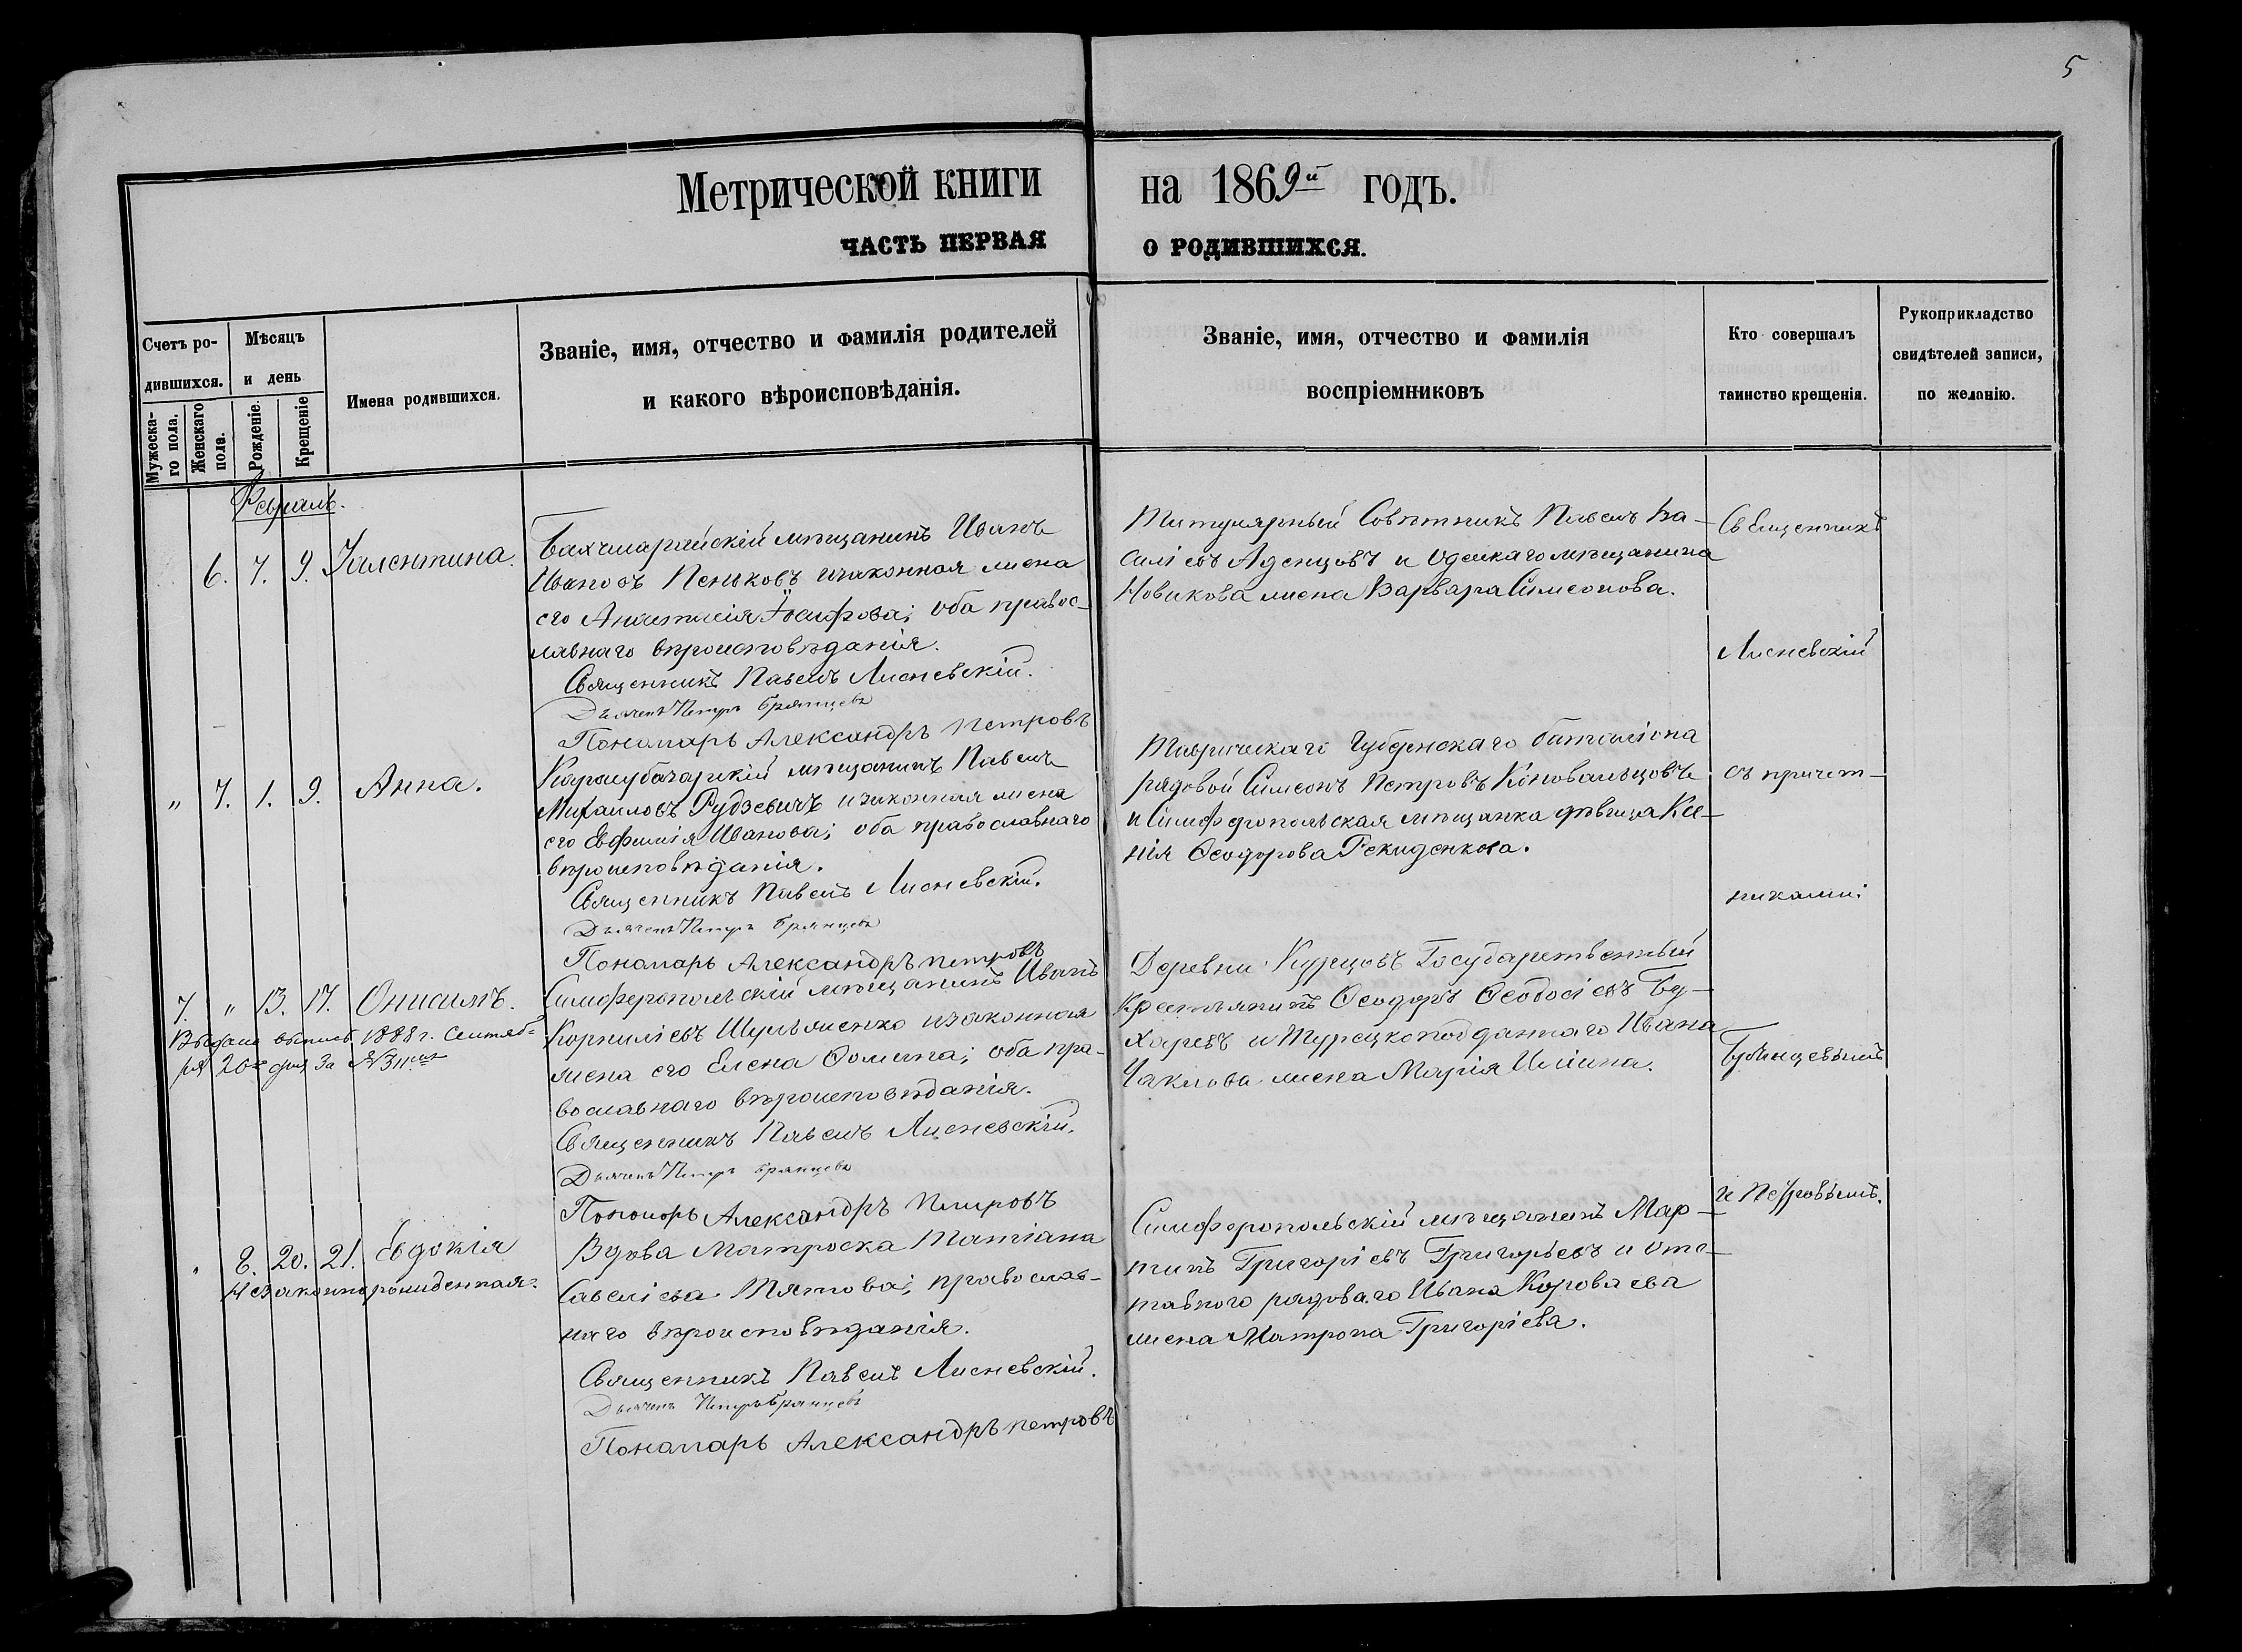 5
Метрической книги на 1869й годъ.
ЧАСТЬ ПЕРВАЯ О РОДИВШИХСЯ.
Счетъ ро-
дившихся.
Мужеска-
го пола.
Женскаго
пола.
Мѣсяцъ
и день
Рожденіе.
Крещеніе
Имена родившихся.
Званіе, имя, отчество и фамилія родителей
и какого вѣроисповѣданія.
Званіе, имя, отчество и фамилія
воспріемниковъ
Кто совершалъ
таинство крещенія.
Рукоприкладство
свидѣтелей записи,
по желанію.
Февраль.
6. 7. 9.
Бахчисарайскій мѣщанинъ Иванъ
Ивановъ Пеньковъ изаконная жена
его Анастасія Іосифова; оба правос-
лавнаго вѣроисповѣданія.
Священникъ Павелъ Лисневскій.
Дьячекъ Петръ Брянцевъ
Пономарь Александръ Петровъ
Титулярный Совѣтникъ Павелъ Ва-
силіевъ Аденцовъ и Одескаго мѣщанина
Новикова жена Варвара Симеонова.
Священникъ
Лисневскій
съ причет-
никами:
Брянцевымъ
и Петровымъ.
„ 7. 1. 9. Анна.
Карасубазарскій мѣщанинъ Павелъ
Михаиловъ Рудзевичъ изаконная жена
его Евфимія Иванова; оба православнаго
вѣроисповѣданія.
Священникъ Павелъ Лисневскій.
Дьячекъ Петръ Брянцевъ
Пономарь Александръ Петровъ
Таврическаго Губернскаго баталіона
рядовой Симеонъ Петровъ Коновальцовъ
и Симферопольская мѣщанка дѣвица Ксе-
нія Ѳеодорова
7. „ 13. 17. Онисимъ.
Выдана выпись 1888 г. Сентяб-
ря 20го дня за №
Симферопольскій мѣщанинъ Иванъ
Корниліевъ Шульженко изаконная
жена его Елена Ѳомина; оба пра-
вославнаго вѣроисповѣданія.
Священникъ Павелъ Лисневскій.
Дьячекъ Петръ Брянцевъ
Пономарь Александръ Петровъ
Деревни Курцовъ Государственный
Крестьянинъ Ѳеодоръ Ѳеодосіевъ Бу-
харевъ и Турецкоподданнаго Ивана
Чаклова жена Марія Иліина.
„ 8. 20. 21. Евдокія
Незаконнорожденная.
Вдова Матроска Татіана
Савеліева Тятова; православ-
наго вѣроисповѣданія.
Священникъ Павелъ Лисневскій.
Дьячекъ Петръ Брянцевъ
Пономарь Александръ Петровъ
Симферопольскій мѣщанинъ Мар-
тинъ Григоріевъ Григорьевъ и отс-
тавного рядоваго Ивана Короваева
жена Матрона Григоріева.